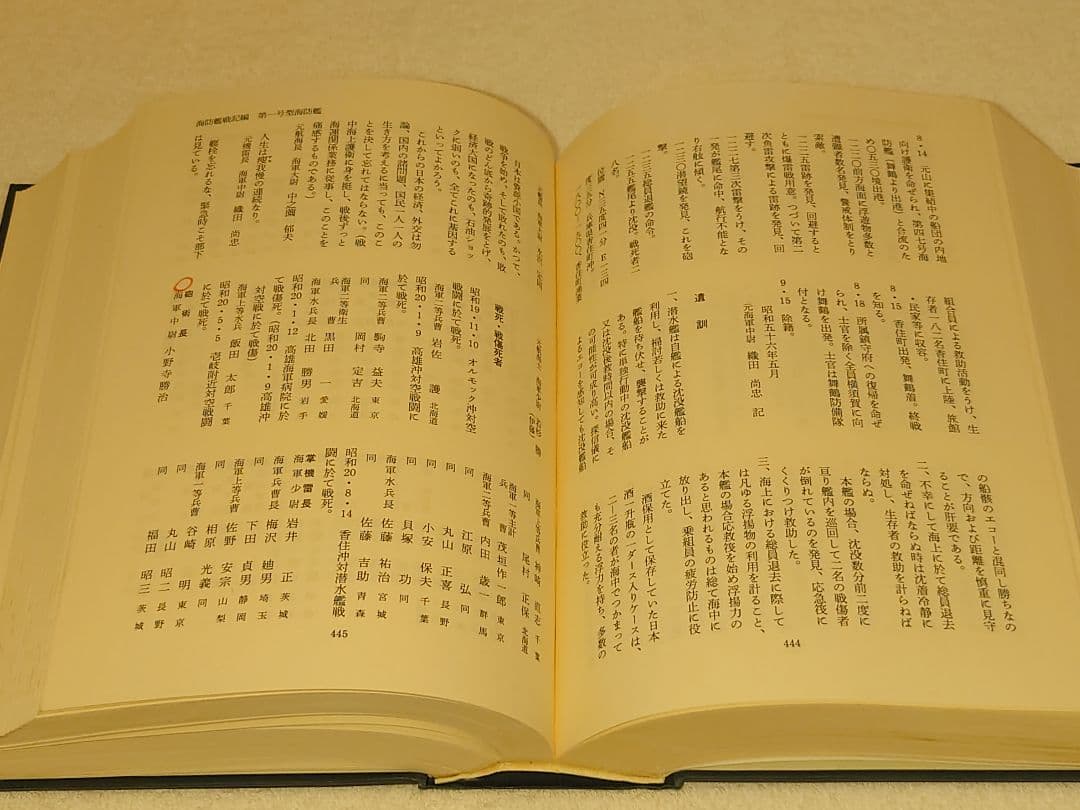 8・14 元山に集結中の船団の内地
向け護衛を命ぜられ、第四七号海
防艦(舞鶴より出港)と合流のた
め〇五三〇境出港。
一二三〇前方海面に浮遊物多数と
遭難者数名発見、警戒体制をとり
索敵。
一二二五雷跡を発見、回避すると
ともに爆雷戦用意。つづいて第二
次魚雷攻撃による雷跡を発見、回
避す。
一二二七第三次雷撃をうけ、その
一発が艦尾に命中、航行不能とな
り右舷に傾く。
一二三〇潜望鏡を発見、これを砲
撃。
一二三五総員退艦の命令。
一二三五艦尾より沈没、戦死者二
八名。
組合員による救助活動をうけ、生
存者一八二名香住町に上陸、旅館
・民家等に収容。
8・15 香住町出発、舞鶴着。終戦
を知る。
8・18 所属鎮守府への復帰を命ぜ
られ、士官を除く全員横須賀に向
け舞鶴を出発。士官は舞鶴防備隊
付となる。
9・15 除籍。
昭和五十六年五月
元海軍中尉 織田 尚忠 記
遺訓
一、潜水艦は自艦による沈没艦船を
利用し、桶討若しくは救助に来た
艦船を待ち伏せ、襲撃することが
ある。特に単独行動中の沈没艦船
又は沈没後数時間以内の場合、そ
の可能性が可成り高い。探信儀に
よるエコーを感応しても沈没艦船
の船骸のエコーと混同し勝ちなの
で、方向および距離を慎重に見守
ることが肝要である。
二、不幸にして海上に於て総員退去
を命ぜねばならぬ時は沈着冷静に
対処し、生存者の救助を計らねば
ならぬ。
本艦の場合、沈没数分前二度に
亘り艦内を巡回して二名の戦傷者
が倒れているのを発見、応急後に
くくりつけ救助した。
三、海上における総員退去に際して
は凡ゆる浮揚物の利用を計ること、
本艦の場合応救筏を始め浮揚力の
あると思われるものは総て海中に
放り出し、乗組員の疲労防止に役
立てた。
酒保用として保存していた日本
酒一升瓶の一ダース入りケースは、
二―三名の者が海中でつかまって
も充分耐える浮力を持ち、多数の
救助に役立った。
444
海防艦戦記編 第一号型海防艦
日本は資源小国である。かつて、
戦争を始め、そして敗れたのも、敗
戦のどん底から奇跡的発展をとげ、
経済大国になったのも、石油ショッ
クに弱いのも、全てこれに基因する
といってよかろう。
これからの日本の経済、外交は勿
論、国内の諸問題、国民一人一人の
生き方を考えるに当っても、このこ
とを決して忘れてはならない。(戦
中海上護衛に身を挺し、戦後ずっと
海運関係業務に従事し、このことを
痛感するものである。)
元航海長 海軍大尉 中之薗 郁夫
人生は痩我慢の連続なり。
元機雷長 海軍中尉 織田 尚忠
艦栓を忘れるな、緊急時こそ部下
は見ている。
戦死・戦傷死者
昭和19・11・10 オルモック沖対空
戦闘に於て戦死。
海軍二等兵曹 岩佐 護 北海道
昭和20・1・9 高雄沖対空戦闘に
於て戦死。
海軍二等兵曹 駒寺 益夫 東京
同 岡村 定吉 北海道
海軍二等衛生兵曹 黒田 一 愛媛
海軍水兵長 北田 勝男 岩手
昭和20・1・12 高雄海軍病院に於
て戦傷死。(昭和20・1・9高雄沖
対空戦に於て戦傷)
海軍上等水兵 飯田 太郎 千葉
昭和20・5・5 壱岐附近対空戦闘
に於て戦死。
砲術長
海軍中尉 小野寺勝治
海軍上等兵曹 神崎 直志 千葉
同 尾村 正保 北海道
海軍一等主計兵曹 茂垣作一郎 東京
海軍二等兵曹 内田 歳一 群馬
同 江原 弘 同
同 丸山 正喜 長野
同 小安 保夫 千葉
同 貝塚 功 同
海軍水兵長 佐藤 祐治 宮城
同 佐藤 吉助 青森
昭和20・8・14 香住沖対潜水艦戦
闘に於て戦死。
掌機雷長
海軍少尉 岩井 正 茨城
海軍兵曹長 梅沢 廸男 埼玉
同 下田 貞男 静岡
海軍上等兵曹 佐野 安宗 山梨
同 相原 光義 同
海軍一等兵曹 谷崎 明 東京
同 丸山 昭二 長野
同 福田 昭三 茨城
445